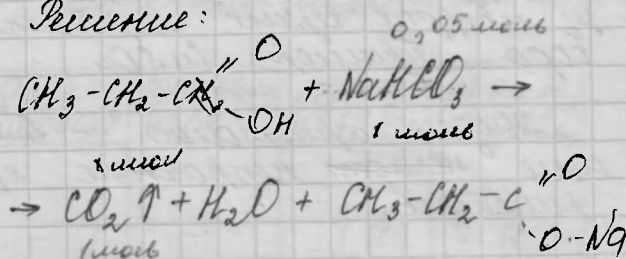 Решение:
0,05 моль
CH3-CH2-C(=O)-OH + NaHCO3 →
1 моль
1 моль
→ CO2↑ + H2O + CH3-CH2-C(=O)-O-Na
1 моль